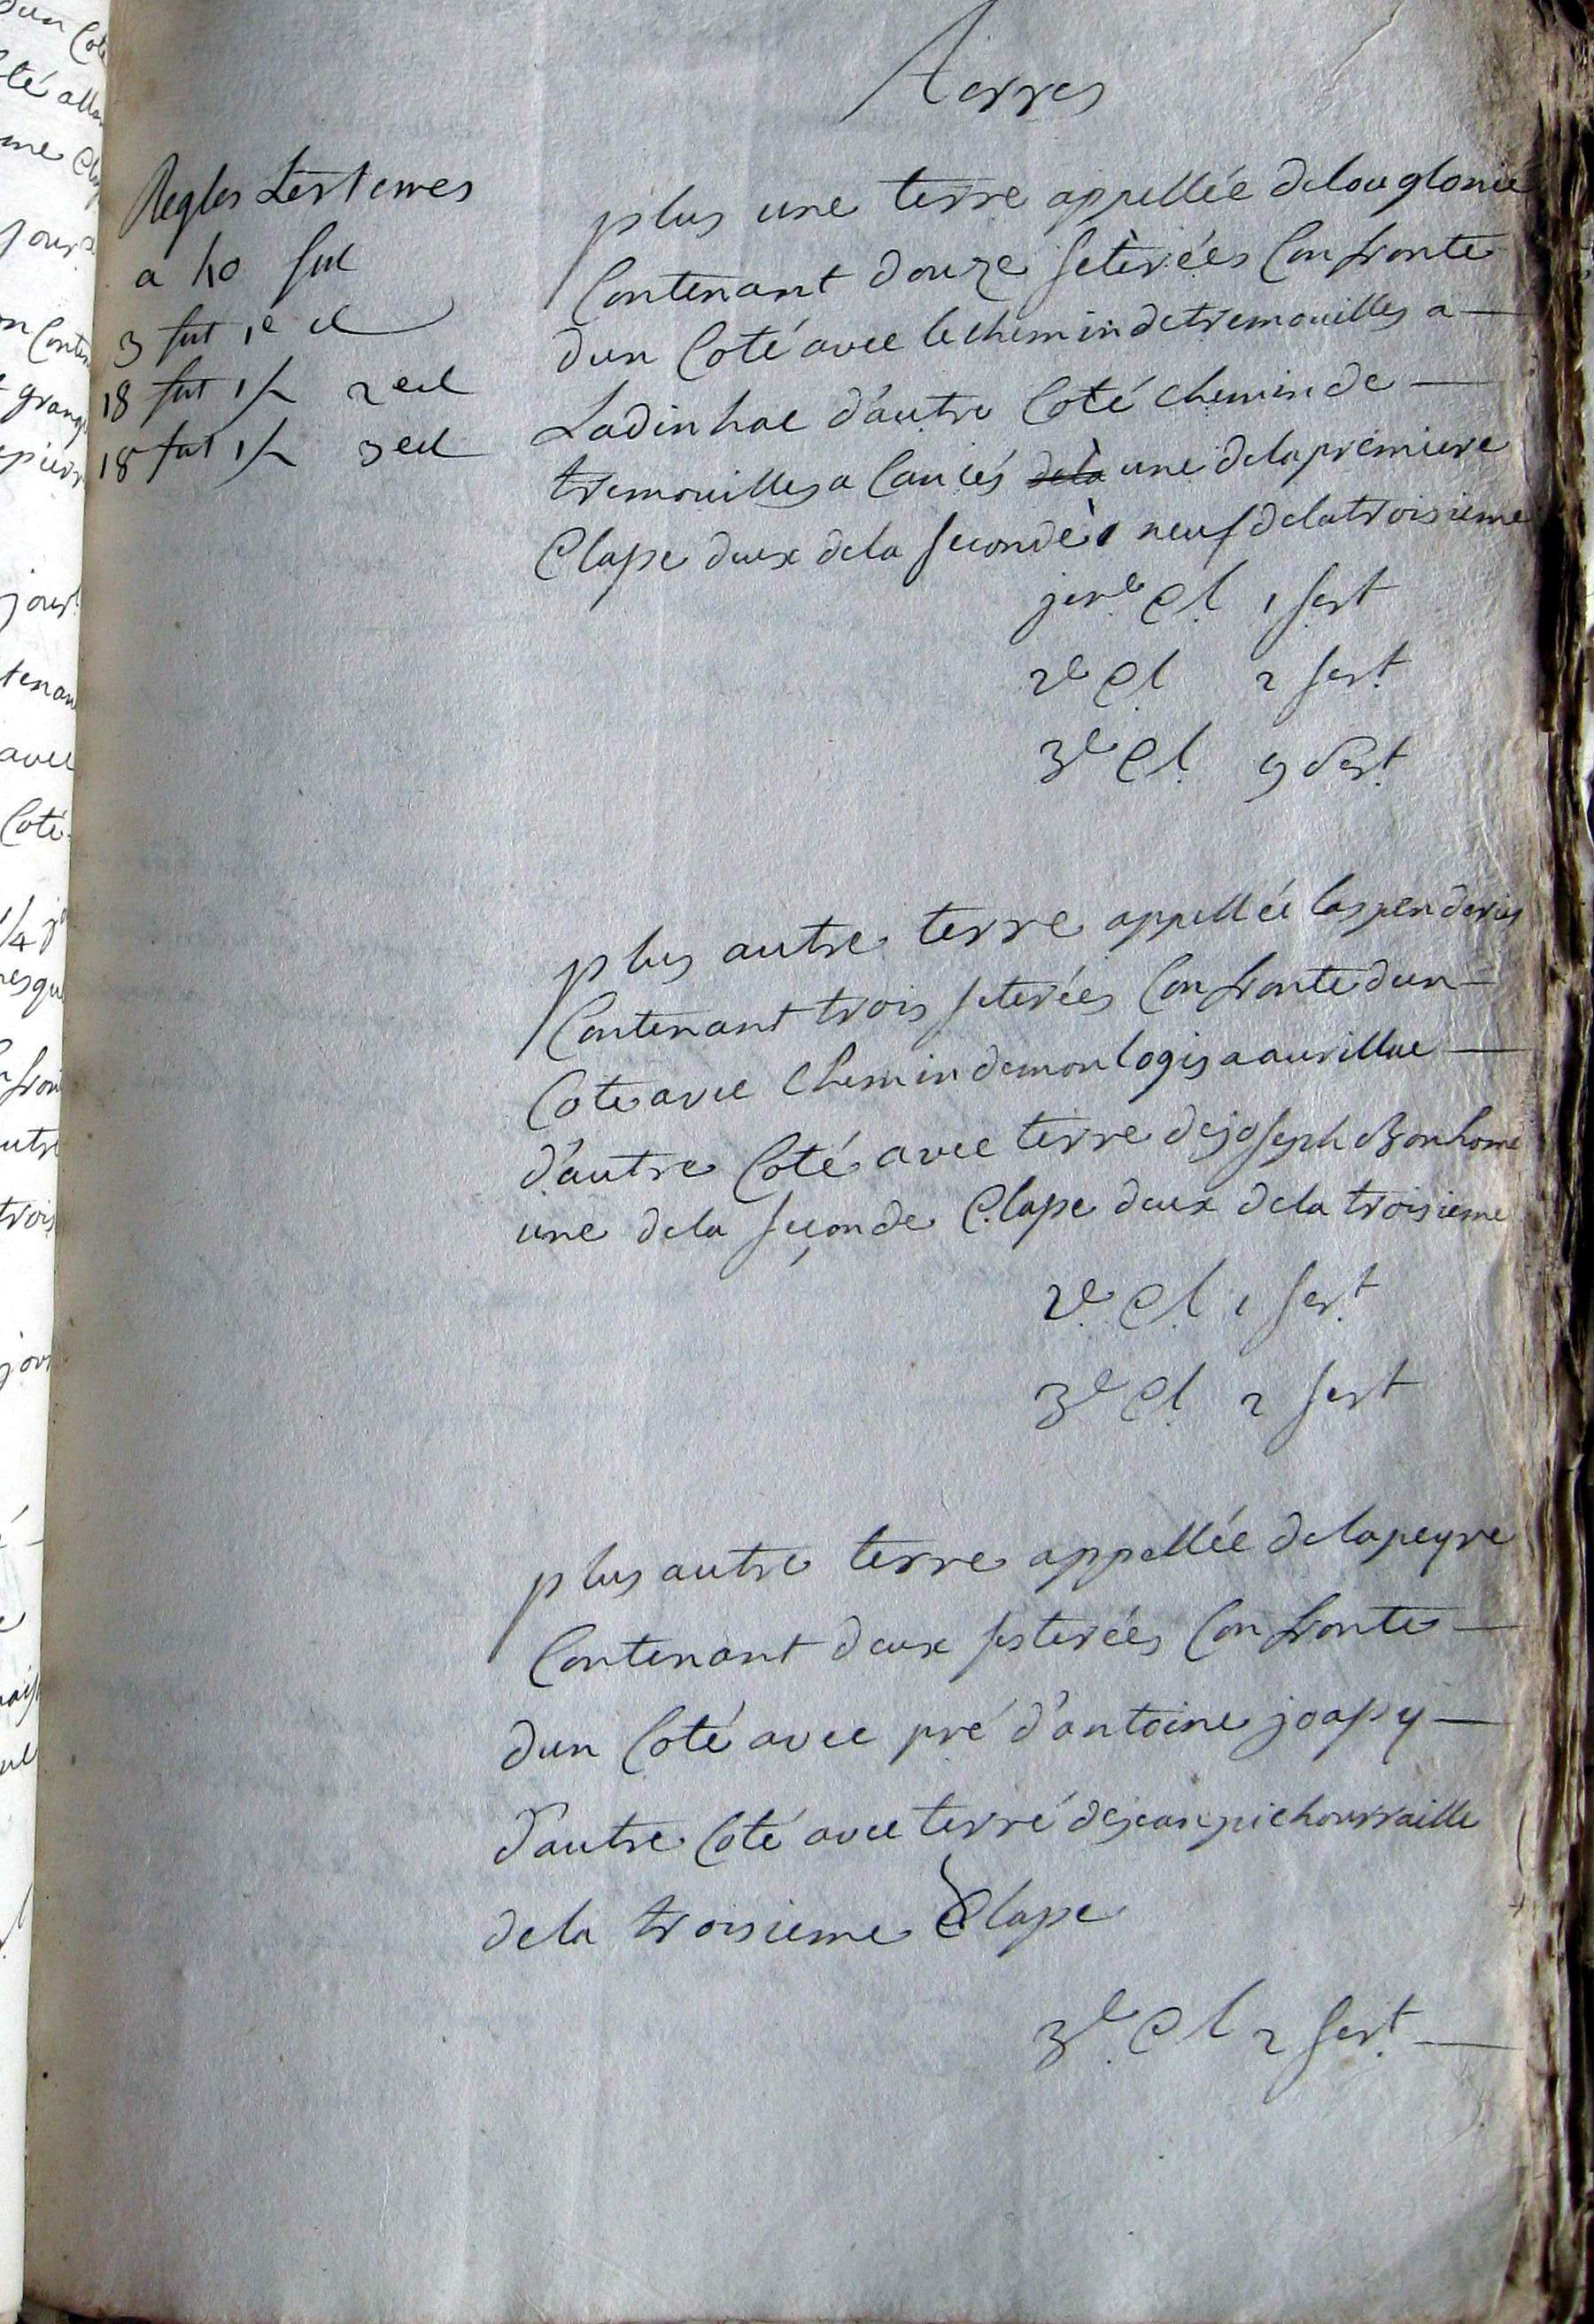 Terres
Regles Les terres
a 40 set
3 set 1e cl
18 set 1/2 2e cl
18 set 1/2 3e cl
plus une terre appellée delouglonie
Contenant douze seterées Confronte
dun Coté avec le chemin de tremouilles a
Ladinhac d'autre Coté chemin de
tremouilles a Lanciés dela une dela premiere
Classe deux dela seconde neuf dela troisieme
1ere Cl 1 sest
2e Cl 2 sest.
3e Cl. 9 sest.
plus autre terre appellée
Contenant trois seterées Confronte dun
Cote avec Chemin de monlogis a aurillac
d'autre Coté avec terre de joseph Bonhome
une dela seconde Classe deux dela troisieme
2e. Cl. 1 sest.
3e Cl 2 sest
plus autre terre appellée delapeyre
Contenant deux sesterées Confronte
dun Coté avec pré d'antoine
d'autre Coté avec terré de jean pichourraille
dela troisieme Classe
3e. Cl 2 sest.
dun Coté
jour
Conten
grang
jour
tenan
avec
Coté
1/4
autre
trois